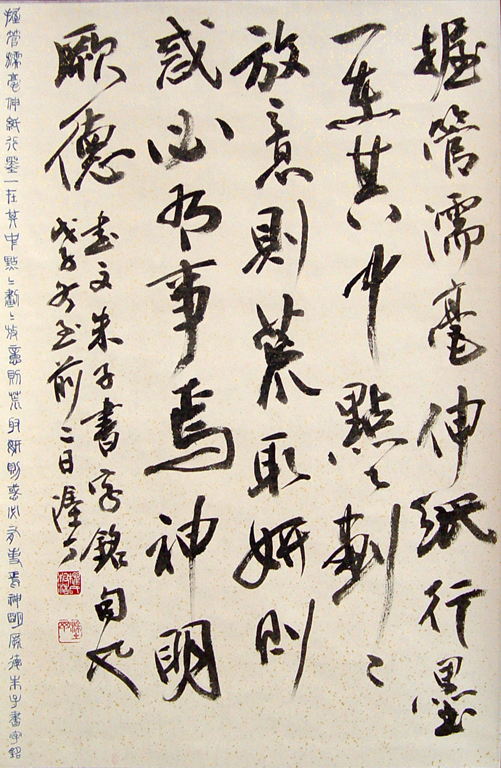 握管濡毫伸紙行墨
一在其中點々劃々
放意則荒取妍則
惑必有事焉神明
厥德
書文朱子書字銘句也
戊子冬至前二日漥
握管濡毫伸紙行墨一在其中點々劃々放意則荒取妍則惑必有事焉神明厥德朱子書字銘